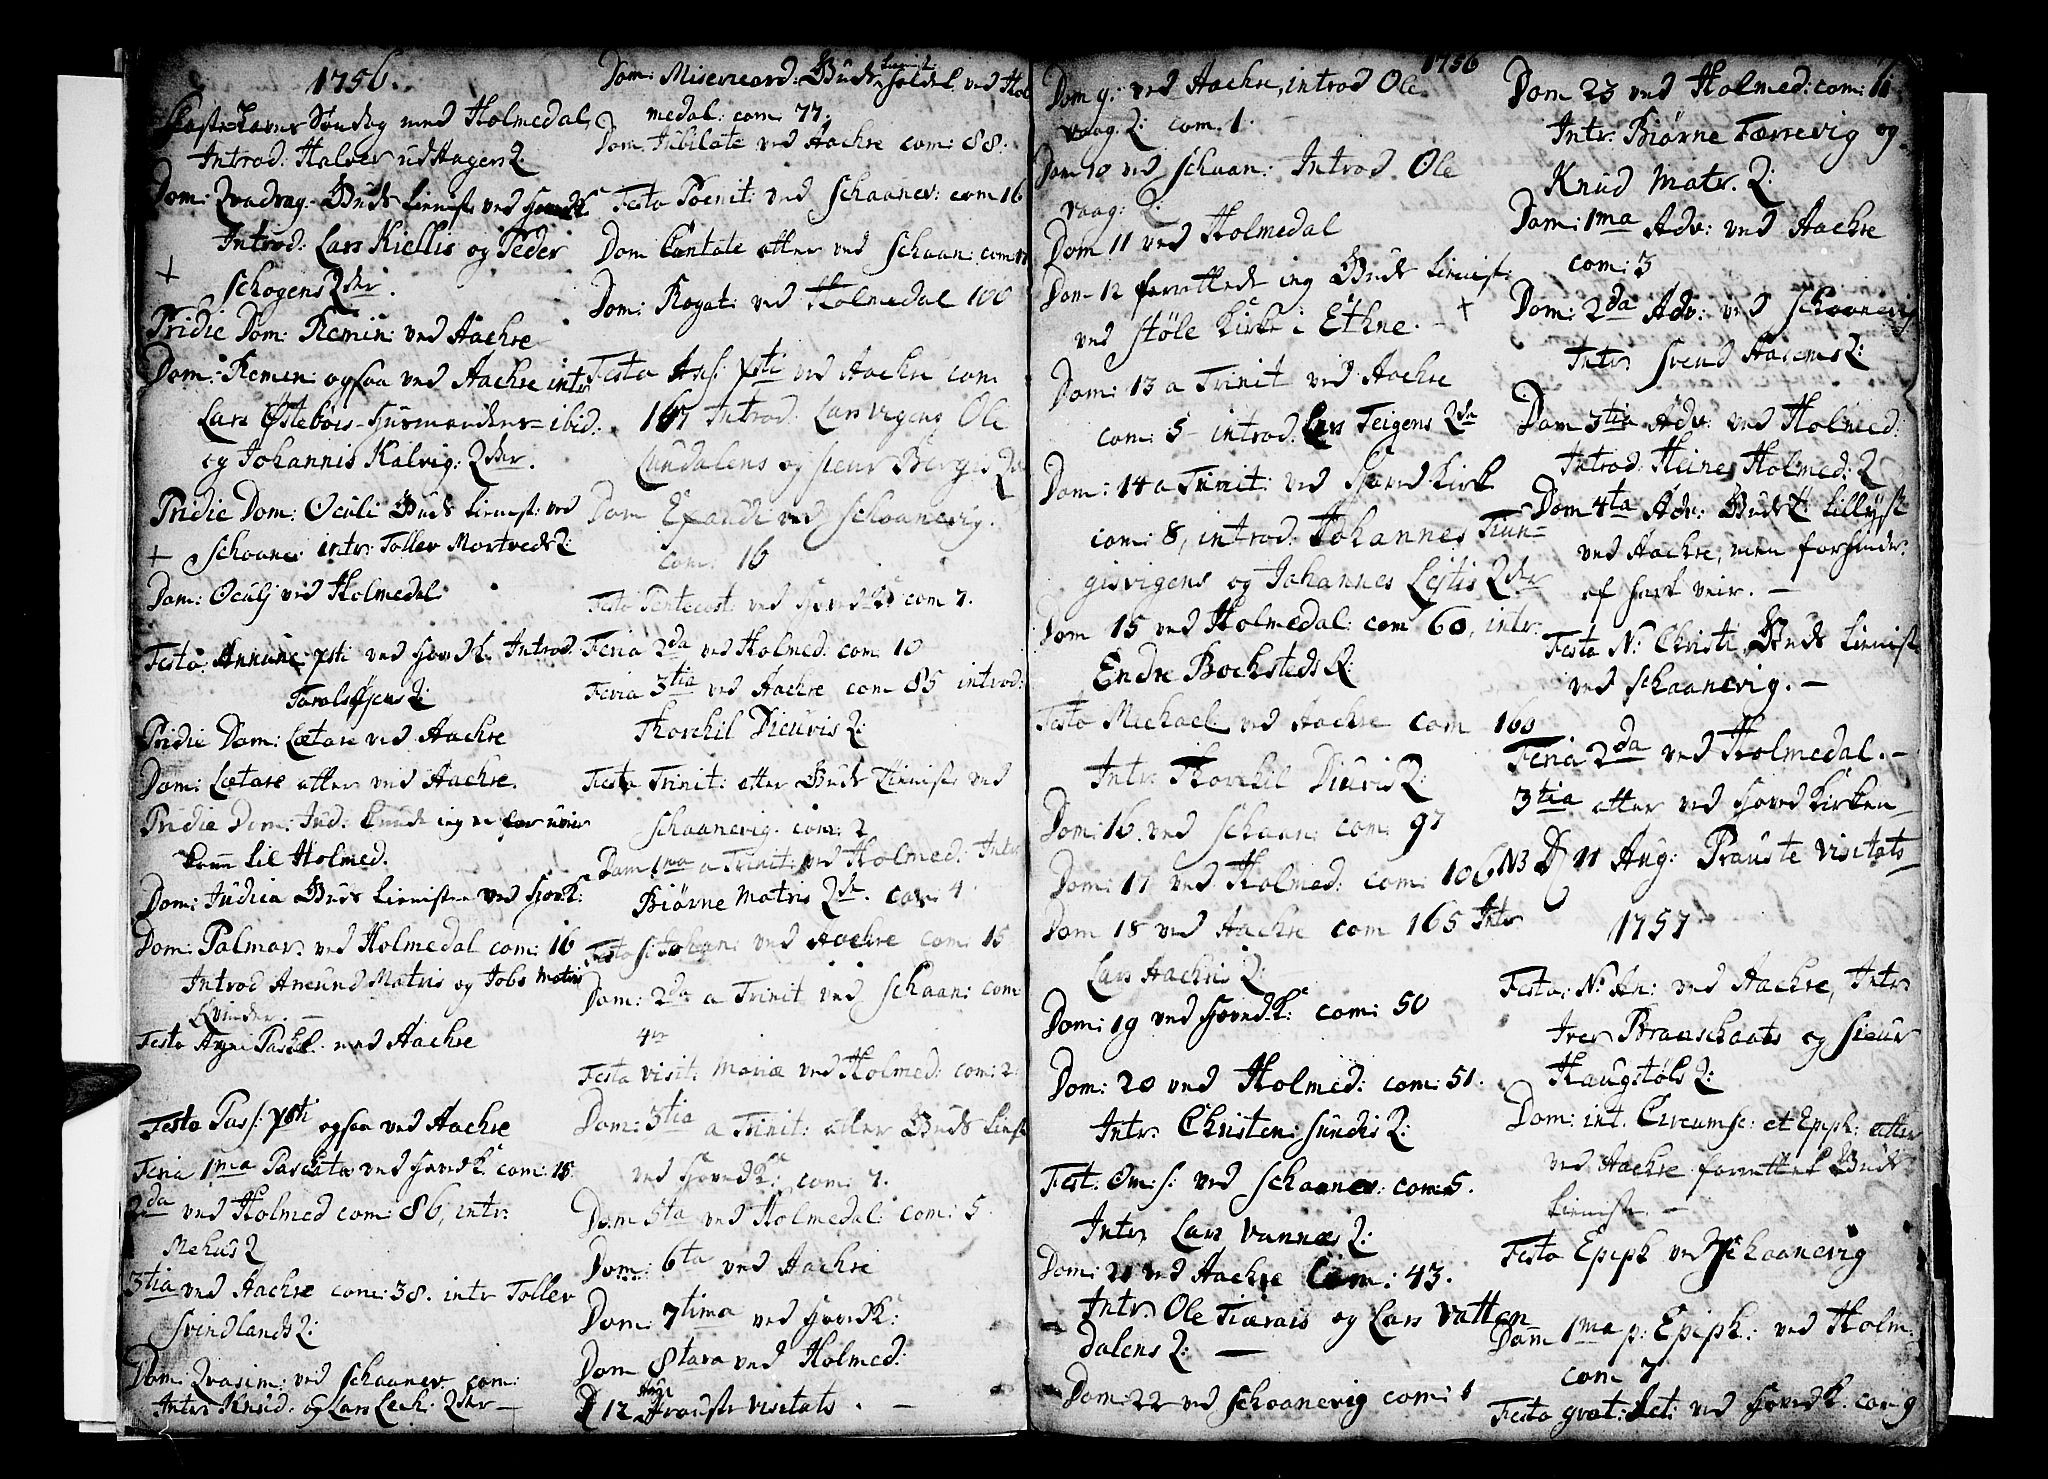 1756.
Faste-Lavns Søndag ved Holmedal,
Introd: Halver Hagens Q:
Dom: Qvadrag: Guds tienist: ved HovedK
Introd: Lars Kiellis og Peder
+ Schogens Qdr.
Pridie Dom: Remin: ved Aachre
Dom: Remin: ogsaa ved Aachre intr
Lars Østebøis Huusmandens ibid:
og Johannis Kalvig: Qdr.
Pridie Dom: Oculi Guds tienist: ved
+ Schaane: intr: Tollev Mortveds Q:
Dom: Oculj ved Holmedal
Festo Annunc: xsti ved HovedK. Introd.
Q:
Pridie Dom: Lætare ved Aachre
Dom: Lætare atter ved Aachre.
Pridie Dom: Jud: kunde ieg for uveir
kom til Holmed.
Dom: Judica Guds tienisten ved HovK:
Dom: Palmar: ved Holmedal com: 16
Introd Amund Matris og Jobs Matris
Qvinder. -
Festo Agni Paschal: ved Aachre
Festo Pass: xsti ogsaa ved Aachre
Feria 1ma Paschatos ved HovedK: com: 18
2da ved Holmed com: 86, intr:
Mehus Q
3tia ved Aachre com: 38. intr Tollev
Svindlands Q:
Dom: Qvasim: ved Schaanev: com:
Intr: Knud: og Lars Lech: Qdr -
Dom: Misericord: Guds tieni: holdet ved Hol
medal: com: 77.
Dom Jubilate ved Aachre com: 88.
Festo Poenit: ved Schaanev: com 16
Dom Cantate atter ved Schaan: com
Dom: Rogat: ved Holmedal 100
Festo Asc: xsti ved Aachre com
167 Introd: Lars Ole
Lundalens og Siur Bergis Q
Dom Exaudi ved Schaanevig.
com: 16
Festo Pentecost: ved HovedK: com 7.
Feria 2da ved Holmed: com: 10
Feria 3tia ved Aachre com 85 introd:
Thorchil Dieuris Q:
Festo Trinit: atter Guds Tieniste ved
Schaanevig. com: 2
Dom 1ma a Trinit: ved Holmed: Intr
Biørne Matris Qde. com: 4
Festo S: Johan: ved Aachre com: 15
Dom: 2da a Trinit ved Schaan: com
4or
Festo visit. Mariæ ved Holmed: com: 2
Dom: 3tia a Trinit: atter Guds tienist
ved HovedK: com: 7.
Dom 5ta ved Holmedal: com: 5.
Dom: 6ta ved Aachre
Dom: 7tima ved HovedK:
Dom 8tava ved Holmed:
D 12 Aug: Prouste visitats. -
1756
Dom 9: ved Aachre, introd Ole
vaag: Q: com. 1.
Dom 10 ved Schaan: Introd. Ole
vaag: Q:
Dom 11 ved Holmedal
Dom 12 forrettede ieg Guds tienist:
ved Støle Kirke i Ethne. - +
Dom: 13 a Trinit ved Aachre
com: 5 - introd: Lars Teigens Qde
Dom: 14 a Trinit: ved Hoved Kirk
com: 8, introd: Johannes Tiun=
gisvigens og Johannes Qdr
Dom 15 ved Holmedal: com 60, intr:
Endre Bochsteds Q:
Festo Michael: ved Aachre com 160
Intr: Thorchil Diuris Q:
Dom: 16. ved Schaan: com: 97
Dom: 17 ved Holmed: com: 106
Dom 18 ved Aachre com 165 Intr
Lars Aachris Q:
Dom: 19 ved HovedK: com: 50
Dom: 20 ved Holmed: com: 51.
Intr: Christen: Sundis Q:
Fest. Om: S: ved Schaanev: com: 5.
Intr Lars Vannæs Q:
Dom: 21 ved Aachre Com: 43.
Intr: Ole Tiærais og Lars Vatten
dalens Q: -
Dom: 22 ved Schaanevig com: 8
7.
Dom 23 ved Holmed: com: 11
Intr: Biørne Færrevig og
Knud Matr. Q:
Dom: 1ma Adv: ved Aachre
com: 3
Dom: 2da Adv: ved Schaanevig
Intr Svend Q:
Dom 3tia Adv: ved Holmed:
Introd: Heines Holmed: Q
Dom 4ta Adv: Guds T: tillyst
ved Aachre, men forhindr:
af hart veir. -
Festo N: Christi Guds tienist:
ved Schaanevig. -
Feria 2da ved Holmedal. -
3tia atter ved Hoved Kirken -
NB D 11 Aug: Prouste visitats -
1757
Festo: N: An: ved Aachre, Intr
Iver Braaschaats og Siur
Haugstøls Q:
Dom: int. Circumsc: et Epiph: atter
ved Aachre forrettet Guds
tieniste. -
Festo Epiph ved Schaanevig
Dom 1ma p: Epiph: ved Holm:
com 7
Festo grat: act: ved HovedK: com 9